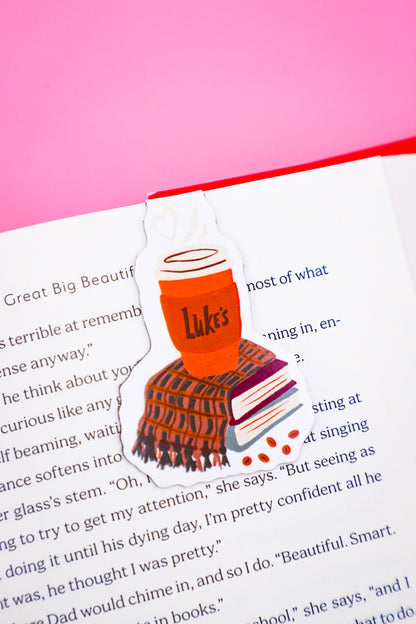 Great Big Beautif
most of what
s terrible at rememb
Luke's
ning in, en-
ense anyway."
e.
he think about you
curious like any g
sting at
lf beaming, waiti
at singing
ance softens into
er glass's stem. "Oh, I
to get my attention," she says. "But seeing as
ng to try
doing it until his dying day, I'm pretty confident all he
it was, he thought I was pretty."
ere Dad would chime in, and so I do. "Beautiful. Smart.
te in books."
school," she says, "and I
hat to do